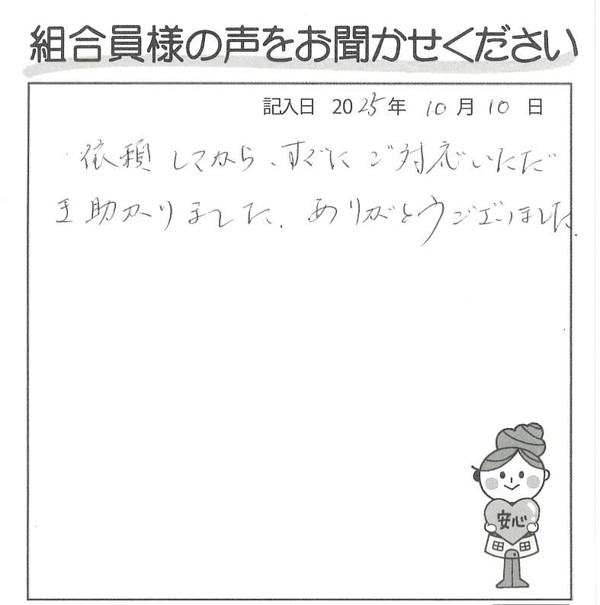 組合員様の声をお聞かせください
記入日 2025年 10月 10日
依頼してから、すぐにご対応いただ
き助かりました。ありがとうございました。
安心